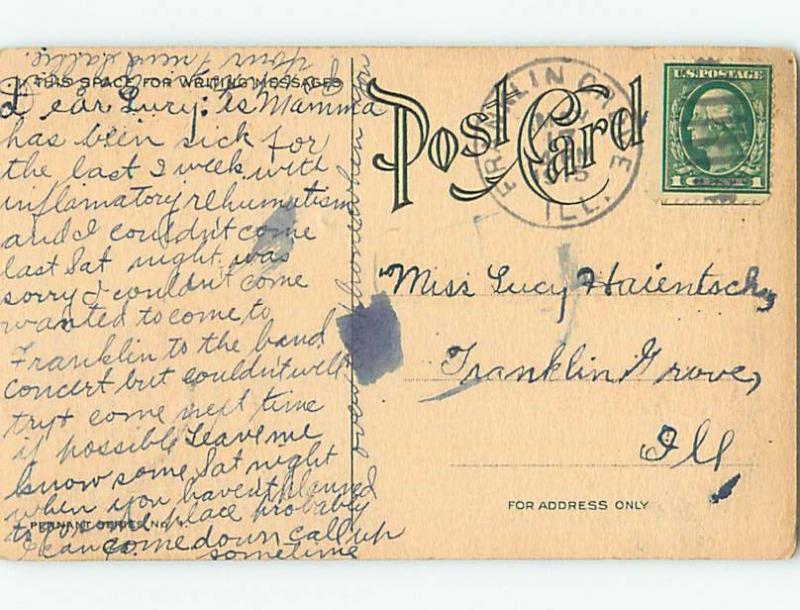 THIS SPACE FOR WRITING MESSAGES
Dear Lucy: As Mamma
has been sick for
the last 2 week with
inflamatory rehumatism
and I couldn't come
last Sat night was
sorry I couldn't come
wanted to come to
Franklin to the band
concert but couldn't will
try & come next time
if possible Leave me
know some Sat night
when you haven't planned
to go some place probably
I can come down call up
sometime
over phone when you
Your friend Sadie.
PENNANT SERIES No.
Post Card
FRANKLIN GROVE
ILL.
U.S. POSTAGE
1 CENTS 1
Miss Lucy Haientschy
Franklin Grove,
Ill
FOR ADDRESS ONLY